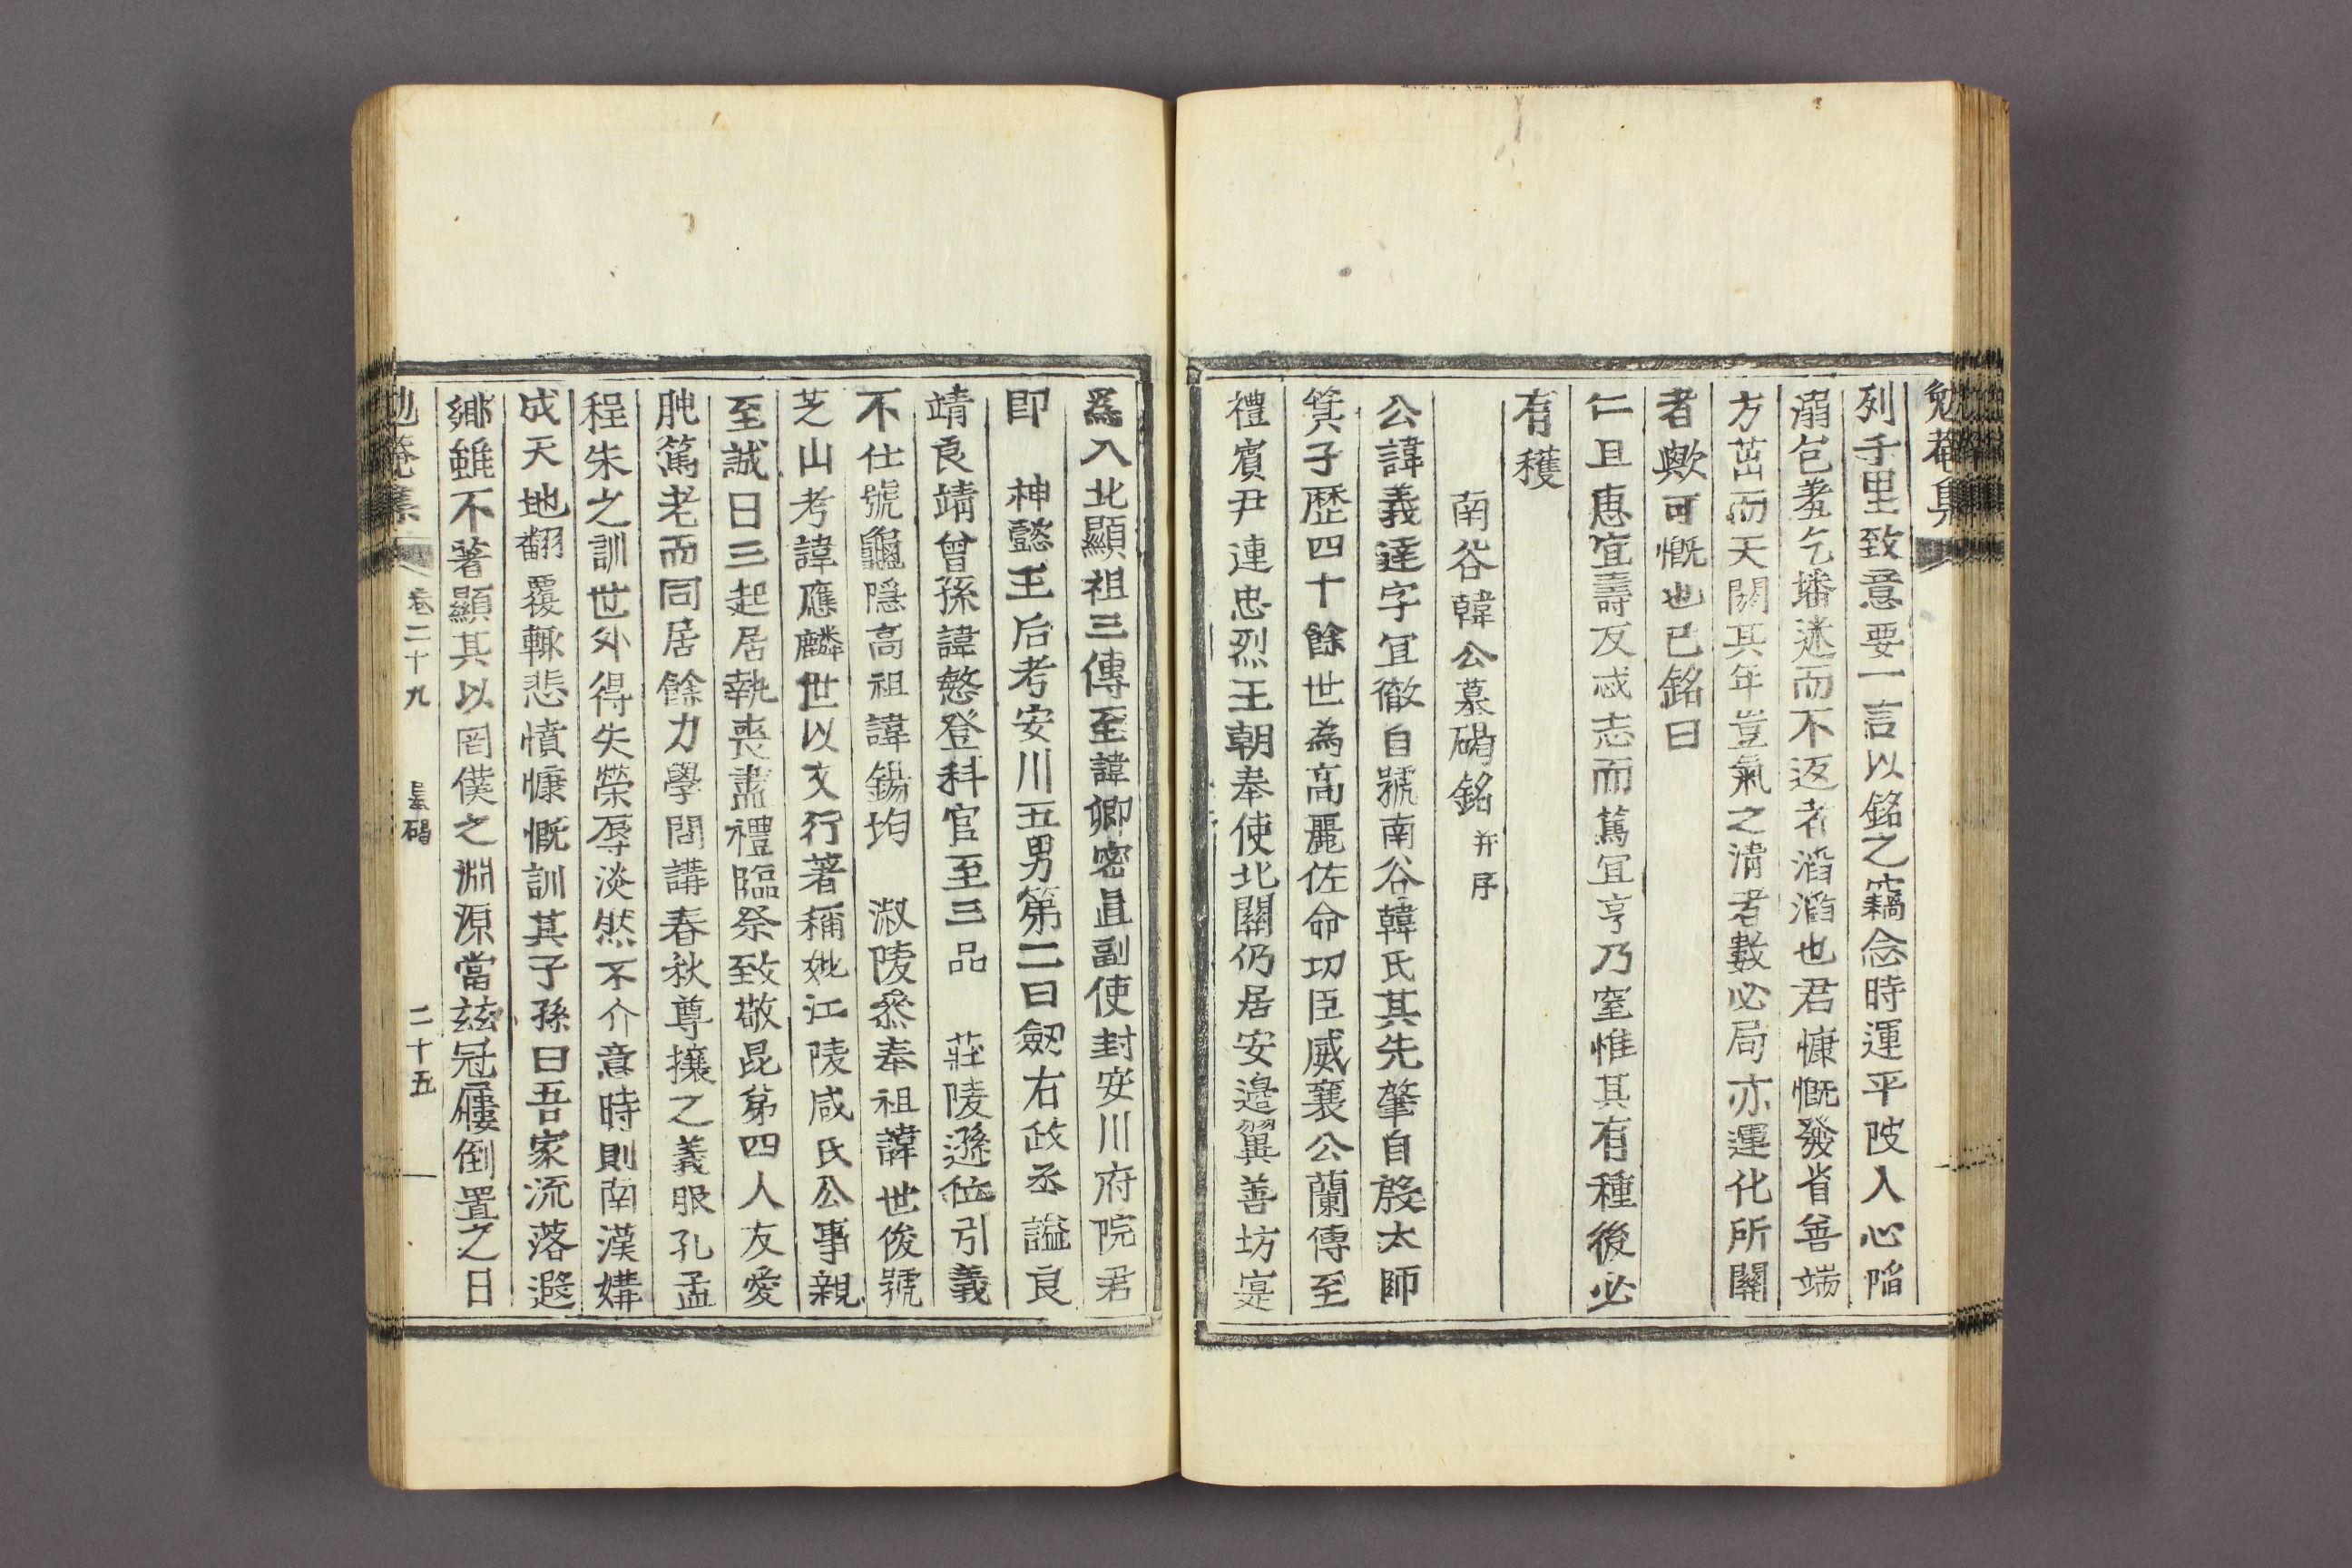 勉菴集
列千里致意要一言以銘之竊念時運平陂人心陷
溺包羞乞墦迷而不返者滔滔也君慷慨發省善端
方茁而天閼其年豈氣之清者數必局亦運化所關
者歟可慨也已銘曰
仁且惠宜壽反忒志而篤宜亨乃窒惟其有種後必
有穫
南谷韓公墓碣銘并序
公諱義達字宜徹自號南谷韓氏其先肇自殷太師
箕子歷四十餘世為高麗佐命功臣威襄公蘭傳至
禮賓尹連忠烈王朝奉使北關仍居安邊翼善坊寔
為入北顯祖三傳至諱卿密直副使封安川府院君
即 神懿王后考安川五男第二曰劒右政丞謚良
靖良靖曾孫諱慜登科官至三品 莊陵遜位引義
不仕號龜隱高祖諱錫均 淑陵叅奉祖諱世俊號
芝山考諱應麟世以文行著稱妣江陵咸氏公事親
至誠日三起居執喪盡禮臨祭致敬昆弟四人友愛
肫篤老而同居餘力學問講春秋尊攘之義服孔孟
程朱之訓世外得失榮辱淡然不介意時則南漢媾
成天地翻覆輒悲憤慷慨訓其子孫曰吾家流落遐
鄉雖不著顯其以罔僕之淵源當玆冠屨倒置之日
勉菴集 卷二十九 墓碣 二十五